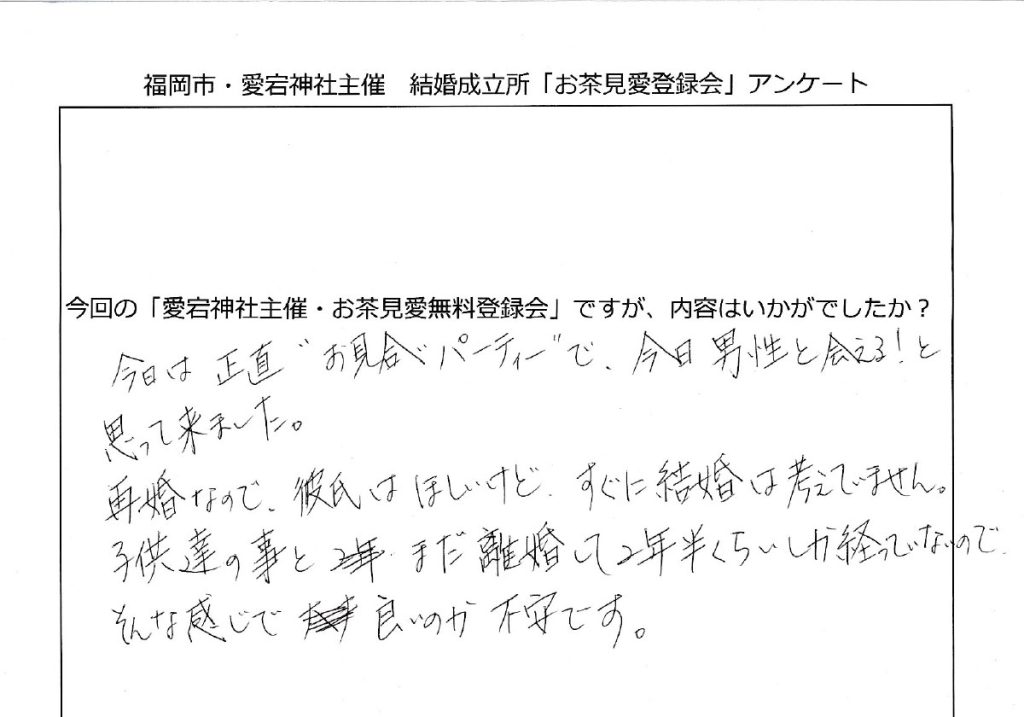 福岡市・愛宕神社主催　結婚成立所「お茶見愛登録会」アンケート
今回の「愛宕神社主催・お茶見愛無料登録会」ですが、内容はいかがでしたか？
今日は 正直 “お見合いパーティー” で、今日 男性と会える！と
思って来ました。
再婚なので、彼氏は ほしいけど、すぐに結婚は考えていません。
子供達の事と まだ 離婚して2年半くらいしか経っていないので、
そんな感じで 良いのか 不安です。